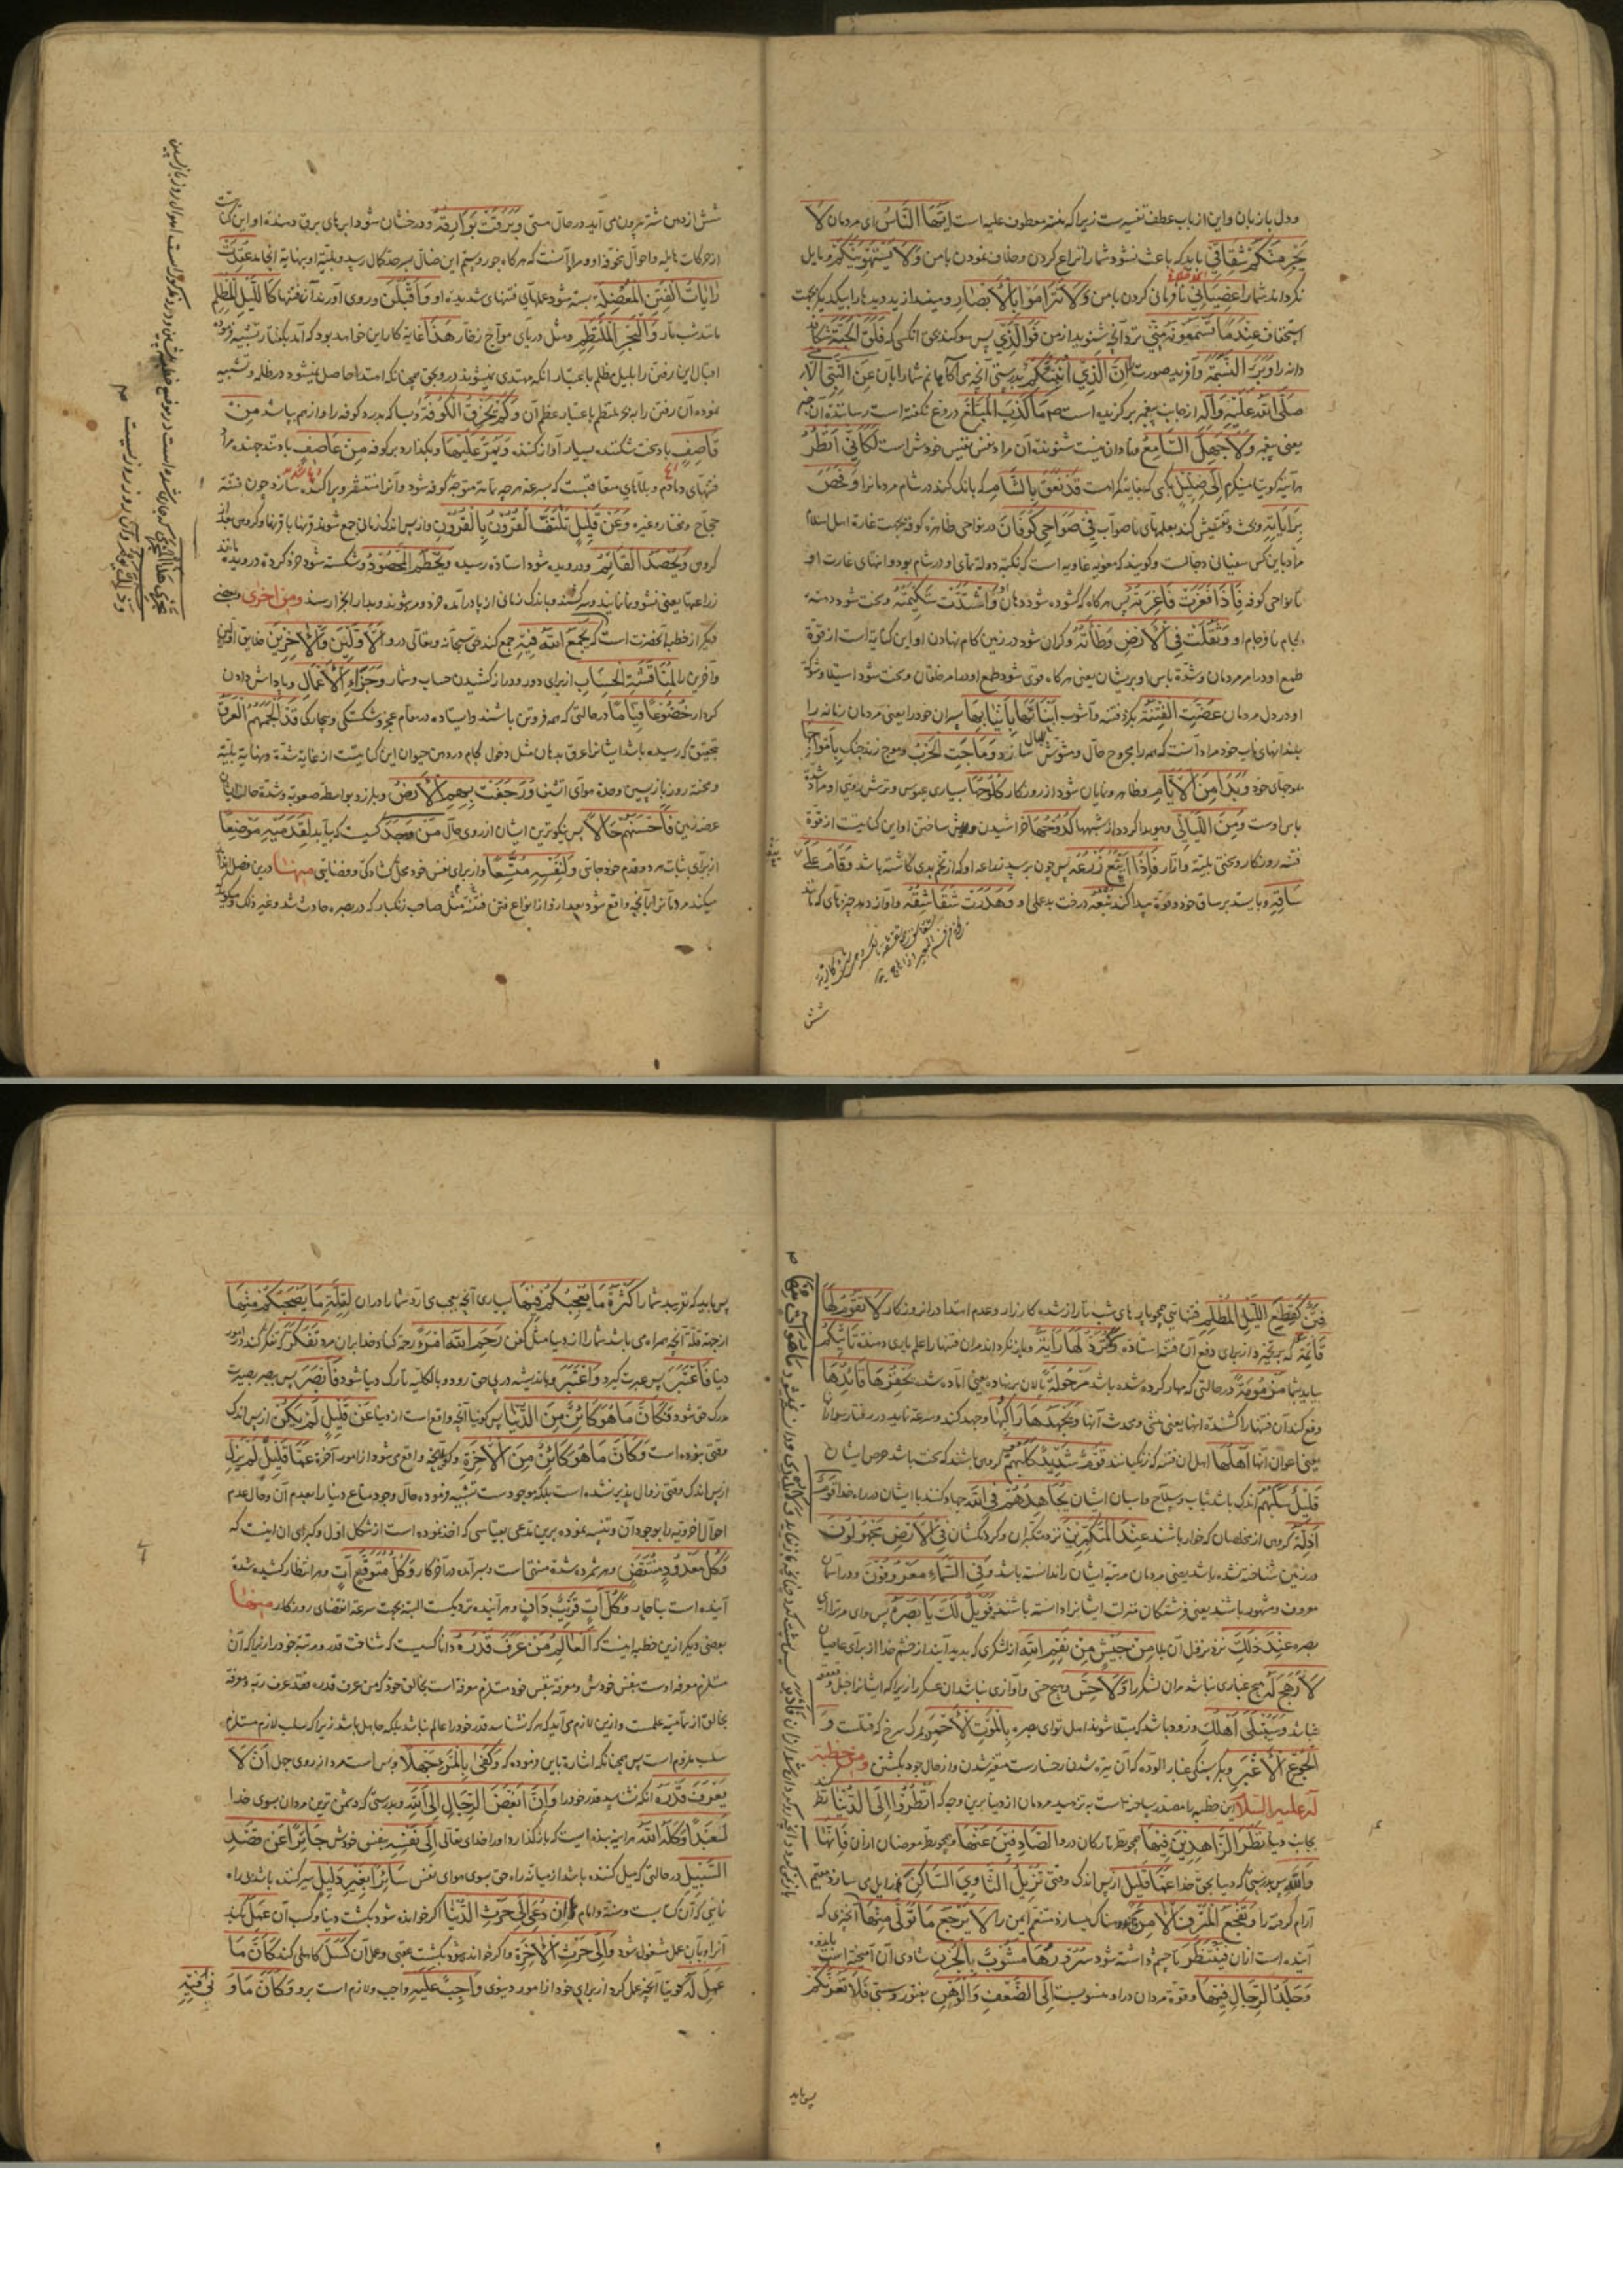 ودل با زبان و این از باب عطف تفسیرست زیرا که بقیه معطوف علیه است اَیُّهَا النَّاسُ ای مردمان لَا
یَجْرِمَنَّكُمْ شِقَاقِی باید که باعث نشود شما را نزاع کردن و خلاف نمودن با من وَلَا یَسْتَهْوِیَنَّكُمْ و مایل
نگرداند شما را عِصْیَانِی نافرمانی کردن با من وَلَا تَتَرَامَوْا بِالْاَبْصَارِ و میندازید دیدها را بیکدیگر بجهت
استخفاف عِنْدَ مَا تَسْمَعُونَهُ مِنِّی نزد آنچه شنوید از من فَوَالَّذِی پس سوکند بحق انکسی که فَلَقَ الْحَبَّةَ شکافت
دانه را وَبَرَأَ النَّسَمَةَ و آفرید صورت را اِنَّ الَّذِی اُنَبِّئُكُمْ بدرستی آنچه می آکاهانم شما را بآن عَنِ النَّبِیِّ الْاُمِّی
صَلَّی اللّٰهُ عَلَیْهِ وَآلِهِ از جانب پیغمبر برگزیده است مَا كَذَبَ الْمُبَلِّغُ دروغ نگفته است رساننده آن خبر
یعنی پیغمبر وَلَا جَهِلَ السَّامِعُ و نادان نیست شنونده آن مراد نفس نفیس خودش است لَكَاَنِّی اَنْظُرُ
هر آینه گوئیا مینکرم اِلَی ضِلِّیلٍ بکسی که بغایت گمراهست قَدْ نَعَقَ بِالشَّامِ که بانک کند در شام مردمانرا وَفَحَصَ
بِرَایَاتِهِ و بحث و تفتیش کند بعلمهای ناصواب فِی ضَوَاحِی كُوفَانَ در نواحی ظاهره کوفه بجهت غارت اهل اسلام
مراد باین کس سفیانی دجالست و گویند که معویه غاویه است که نکبة دولة ما ی او در شام بود و انتهای غارت او
تا نواحی کوفه فَاِذَا فَغَرَتْ فَاغِرَتُهُ پس هرگاه که گشوده شود دهان او وَاشْتَدَّتْ شَكِیمَتُهُ و سخت شود دهنه
لجام نافرجام او وَثَقُلَتْ فِی الْاَرْضِ وَطْاَتُهُ و گران شود در زمین گام نهادن او و این کنایه است از قوة
طمع او در امر مردمان و شدة باس او بریشان یعنی هرگاه قوی شود طمع او در امر خلقان و سخت شود استیلا و شوکة
او در دل مردمان عَضَّتِ الْفِتْنَةُ بگزد فتنه و آشوب اَبْنَاءَهَا بِاَنْیَابِهَا پسران خود را یعنی مردمان زمانه را
بدندانهای ناب خود مراد آنست که همه را مجروح حال و مشوش البال سازد وَمَاجَتِ الْحَرْبُ و موج زند جنک بِاَمْوَاجِهَا
بموجهای خود وَبَدَا مِنَ الْاَیَّامِ و ظاهر و نمایان شود از روزگار كُلُوحُهَا بسیاری عبوس و ترش روئی او مراد شدة
باس اوست وَمِنَ اللَّیَالِی و هویدا کردد از شبهها كُدُوحُهَا خراشیدن و ریش ساختن او این کنایت از قوة
فتنه روزگار و سختی بلیّه و آثار فَاِذَا اَیْنَعَ زَرْعُهُ پس چون برسید زراعه او که از تخم بدی کاشته باشد وَقَامَ عَلَی
سَاقِهِ و بایستد بر ساق خود و قوة پیدا کند یَنْعُهُ درخت بدعملی او وَهَدَرَتْ شَقَاشِقُهُ و آواز دهد چیزهای که مانند
شش
شش از دهن شتر بیرون می آید در حال مستی وَبَرَقَتْ بَوَارِقُهُ و درخشان شود ابرهای برق دهنده او این کنایتست
از حرکات هایله و احوال مخوفه او و مراد آنست که هرگاه جور و ستم این ضال بسر حد کمال رسید و بلیّه او بنهایة انجامد عُقِدَتْ
رَایَاتُ الْفِتَنِ الْمُعْضِلَةِ بسته شود علمهای فتنهای شدیده او وَاَقْبَلْنَ و روی آورند آن فتنها كَاللَّیْلِ الْمُظْلِمِ
مانند شب تار وَالْبَحْرِ الْمُلْتَطِمِ و مثل دریای موّاج زخّار هَذَا غایة کار این خواهد بود که آمد بگفتار تشبیه فرموده
اقبال این رفتن را بلیل مظلم باعتبار انکه مهتدی نمیشوند در و بحق همچنانکه اهتدا حاصل نمیشود در ظلمه و تشبیه
نموده آن رفتن را به بحر ملتطم باعتبار عظم آن وَكَمْ یَخْرِقُ الْكُوفَةَ و بسا که بدرد کوفه را و از هم پاشد مِنْ
قَاصِفٍ باد سخت شکننده بسیار آواز کننده وَیَمُرُّ عَلَیْهَا و بگذارد بر کوفه مِنْ عَاصِفٍ باد تند جهنده مراد
فتنهای دمادم و بلاهای متعاقبست که بسرعة هرچه تمامتر متوجّه کوفه شود و آنرا متفرق و پراکنده سازد چون فتنه
حجّاج و مختار و غیره وَعَنْ قَلِیلٍ تَلْتَفُّ الْقُرُونُ بِالْقُرُونِ و از پس اندک زمانی جمع شوند قرنها باقرنها و کروهی بجند
کروهی وَیُحْصَدُ الْقَائِمُ و درویده شود استاده رسیده وَیُحْطَمُ الْمَحْصُودُ و شکسته شود خرد کرده درویده مانند
زراعتها یعنی نشو و نما نمایند و سرکشند و باندک زمانی از پا در آمده خرد و مرد شوند و بدار الجزا رسند ومن اخری و بعضی
دیکر از خطبه آنحضرت است که یَجْمَعُ اللّٰهُ فِیهِ جمع کند حق سبحانه و تعالی درو الْاَوَّلِینَ وَالْآخِرِینَ خلایق اولین
و آخرین را لِنِقَاشِ الْحِسَابِ از برای دور و دراز کشیدن حساب و شمار وَجَزَاءِ الْاَعْمَالِ و پاداش دادن
کردار خُضُوعًا قِیَامًا در حالتی که همه فروتن باشند و ایستاده در مقام عجز و شکستکی و بیچارگی قَدْ اَلْجَمَهُمُ الْعَرَقُ
بتحقیق که رسیده باشد ایشانرا عرق بدهان مثل دخول لجام در دهن حیوان این کنایتست از غایة شدّة و نهایة بلیّة
و محنة روز بازپسین و حدة هوای آتشین وَرَجَفَتْ بِهِمُ الْاَرْضُ و بلرزد بواسطه صعوبة و شدّة حال ایشان
عرصه زمین فَاَحْسَنُهُمْ حَالًا پس نیکوترین ایشان از روی حال مَنْ وَجَدَ کسیست که بیابد لِقَدَمَیْهِ مَوْضِعًا
از برای ثبات هر دو قدم خود جائی وَلِنَفْسِهِ مُتَّسَعًا و از برای نفس خود محل گشادکی و فضائی منها و درین فصل اشارة
میکند مردمانرا بآنچه واقع شود بعد از و از انواع فتن فتنه مثل صاحب زنکبار که در بصره حادث شد و غیر ذلک و میکوید
فِتَنٌ كَقِطَعِ اللَّیْلِ الْمُظْلِمِ فتنهائی همچو پارهای شب تار از شده کارزار و عدم اهتدا در آن روزکار لَا تَقُومُ لَهَا
قَائِمَةٌ که برنخیزد از برای دفع آن فتنه استاده وَلَا تُرَدُّ لَهَا رَایَةٌ و باز نکرداند مران فتنها را علم یاری دهنده تَاْتِیكُمْ
بیاید بشما مَزْمُومَةً در حالتی که مهار کرده شده باشد مَرْحُولَةً پالان بر نهاده یعنی آماده شده یَحْفِزُهَا قَائِدُهَا
دفع کند آن فتنها را کشنده انها یعنی منشی و محدث آنها وَیَجْهَدُهَا رَاكِبُهَا و جهد کند و سرعة نماید در رفتار سوار آن
یعنی اعوان آنها اَهْلُهَا اهل ان فتنه که زنکیانند قَوْمٌ شَدِیدٌ كَلَبُهُمْ گروهی باشند که سخت باشد حرص ایشان
قَلِیلٌ سَلَبُهُمْ اندک باشد ثیاب و سلاح و اسبان ایشان یُجَاهِدُهُمْ فِی اللّٰهِ جهاد کنند با ایشان در راه خدا قَوْمٌ
اَذِلَّةٌ کروهی از مخلصان که خوار باشند عِنْدَ الْمُتَكَبِّرِینَ نزد متکبران و گردنکشان فِی الْاَرْضِ مَجْهُولُونَ
در زمین شناخته نشده باشد یعنی مردمان مرتبه ایشان را ندانسته باشند وَفِی السَّمَاءِ مَعْرُوفُونَ و در آسمان
معروف و مشهور باشند یعنی فرشتگان منزلت ایشانرا دانسته باشند فَوَیْلٌ لَكِ یَا بَصْرَةُ پس وای مر ترا ای
بصره عِنْدَ ذَلِكَ نزد نزول آن بلا مِنْ جَیْشٍ مِنْ نِقَمِ اللّٰهِ از لشکری که پدید آیند از خشم خدا از برای عاصیان
لَا رَهَجَ لَهُ هیچ غباری نباشد مران لشکر را وَلَا حِسَّ و هیچ حسی و آوازی نباشد ان عسکر را زیرا که ایشانرا خیل و قعقعه
نباشد وَسَیُبْتَلَی اَهْلُكِ و زود باشد که مبتلا شوند اهل تو ای بصره بِالْمَوْتِ الْاَحْمَرِ بمرک سرخ که قتلست وَ
الْجُوعِ الْاَغْبَرِ و بکرسنکی غبار آلوده که آن تیره شدن رخسارست و متغیر شدن و از حال خود بکشتن و من خطبة
له علیه السلام این خطبه را مصدر ساخته است به تزهید مردمان از دنیا برین وجه که اُنْظُرُوا اِلَی الدُّنْیَا نظر کنید
بجانب دنیا نَظَرَ الزَّاهِدِینَ فِیهَا همچو نظر تارکان درو الصَّادِفِینَ عَنْهَا و همچو نظر معرضان از آن فَاِنَّهَا
وَاللّٰهِ پس بدرستی که دنیا بحق خدا عَمَّا قَلِیلٍ از پس اندک وقتی تُزِیلُ الثَّاوِیَ السَّاكِنَ زایل می سازد مقیم
آرام گرفته را وَتَفْجَعُ الْمُتْرَفَ الْآمِنَ و دردمناک میسازد متنعم ایمن را لَا یَرْجِعُ مَا تَوَلَّی مِنْهَا آنچیزی که
آینده است از ان فَیُنْتَظَرَ تا چشم داشته شود سُرُورُهَا مَشُوبٌ بِالْحُزْنِ شادی آن آمیخته است باندوه
وَجَلَدُ الرِّجَالِ فِیهَا و قوّة مردان درو منسوبست اِلَی الضَّعْفِ وَالْوَهَنِ بفتور و سستی فَلَا تَغُرَّنَّكُمْ
پس باید
پس باید که نفریبد شما را كَثْرَةُ مَا یُعْجِبُكُمْ فِیهَا بسیاری آنچه بعجب می آرد شما را دران لِقِلَّةِ مَا یَصْحَبُكُمْ مِنْهَا
از جهة قلّة آنچه همراه می باشد شما را از دنیا مثل کفن رَحِمَ اللّٰهُ امْرَءً رحمة کناد خدا بران مرد تَفَكَّرَ که تفکر کند در امور
دنیا فَاعْتَبَرَ پس عبرت گیرد وَاعْتَبَرَ و باندیشه در پی حق رود و بالکلیه تارک دنیا شود فَاَبْصَرَ پس ببصر بصیرت
مدرک حق شود فَكَاَنَّ مَا هُوَ كَائِنٌ مِنَ الدُّنْیَا پس گوئیا آنچه واقع است از دنیا عَنْ قَلِیلٍ لَمْ یَكُنْ از پس اندک
وقتی نبوده است وَكَاَنَّ مَا هُوَ كَائِنٌ مِنَ الْآخِرَةِ و کوئیا آنچه واقع می شود از امور آخرة عَمَّا قَلِیلٍ لَمْ یَزَلْ
از پس اندک وقتی زوال پذیر نشده است بلکه موجودست تشبیه فرموده حال وجود متاع دنیا را بعدم آن و حال عدم
احوال اخرویّه را بوجود آن و تنبیه نموده برین مدعی بقیاسی که اخذ نموده است از شکل اول و کبرای ان اینست که
وَكُلُّ مَعْدُودٍ مُنْقَضٍ و هر شمرده شده منتهی است و بسر آمده در آخر کار وَكُلُّ مُتَوَقَّعٍ آتٍ و هر انتظار کشیده شده
آینده است ناچار وَكُلُّ آتٍ قَرِیبٌ دَانٍ و هر آینده نزدیکست البته بجهت سرعة انقضای روزکار منها
بعضی دیکر ازین خطبه اینست که الْعَالِمُ مَنْ عَرَفَ قَدْرَهُ دانا کسیست که شناخت قدر و مرتبه خود را زیرا که آن
مستلزم معرفة اوست بنفس خودش و معرفة بنفس خود مستلزم معرفة است بخالق خود که من عرف قدره فقد عرف ربّه و معرفة
بخالق از تمامیّة علمست و ازین لازم می آید که هرکه نشناسد قدر خود را عالم نباشد بلکه جاهل باشد زیرا که سلب لازم مستلزم
سلب ملزوم است پس همچنانکه اشارة باین فرموده که وَكَفَی بِالْمَرْءِ جَهْلًا و بس است مرد از روی جهل اَنْ لَا
یَعْرِفَ قَدْرَهُ انکه نشناسد قدر خود را وَاِنَّ اَبْغَضَ الرِّجَالِ اِلَی اللّٰهِ و بدرستی که دشمن ترین مردان بسوی خدا
لَعَبْدٌ وَكَلَهُ اللّٰهُ هر اینه بنده ایست که باز گذارد او را خدای تعالی اِلَی نَفْسِهِ بنفس خودش جَائِرًا عَنْ قَصْدِ
السَّبِیلِ در حالتی که میل کننده باشد از میانه راه حق بسوی هوای نفس سَائِرًا بِغَیْرِ دَلِیلٍ سیر کننده باشد بی راه
نمائی که آن کتابست و سنّة و امام اِنْ دُعِیَ اِلَی حَرْثِ الدُّنْیَا اکر خوانده شود بکشت دنیا و کسب آن عَمِلَ کند
آنرا و بآن عمل مشغول شود وَاِلَی حَرْثِ الْآخِرَةِ و اکر خوانده شود بکشت عقبی و عمل آن كَسِلَ کاهلی کند كَاَنَّ مَا
عَمِلَ لَهُ گوئیا آنچه عمل کرد از برای خود از امور دنیوی وَاجِبٌ عَلَیْهِ واجب و لازم است برو وَكَاَنَّ مَا وَنَی فِیهِ